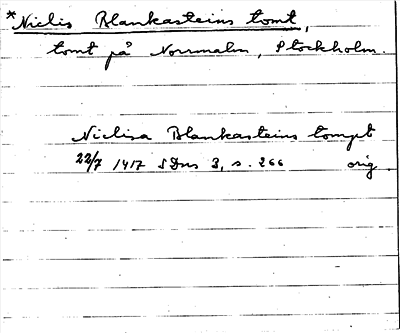 *Niclis Blankasteins tomt,
tomt på Norrmalm, Stockholm.
Niclisa Blankasteins tompt
22/7 1417 SDns 3, s. 266 orig